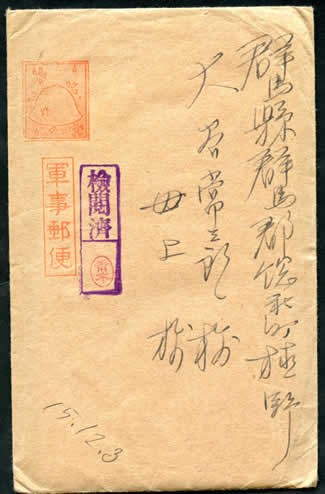 群馬縣群馬郡総社町植野
大谷常三郎様
母上様
軍事郵便
檢閲濟
15.12.3